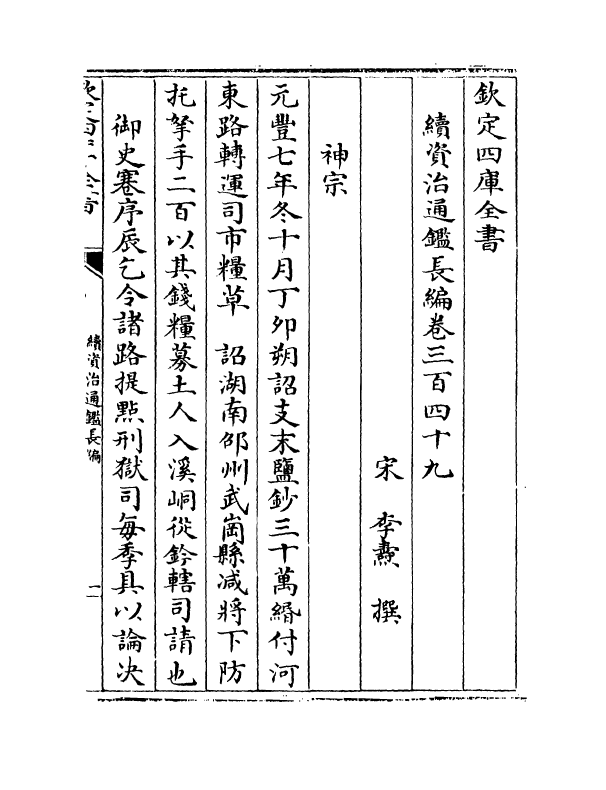 欽定四庫全書
續資治通鑑長編卷三百四十九
宋 李燾 撰
神宗
元豐七年冬十月丁卯朔詔支末鹽鈔三十萬緡付河
東路轉運司市糧草 詔湖南邵州武崗縣减將下防
托拏手二百以其錢糧募土人入溪峒從鈐轄司請也
御史蹇序辰乞令諸路提㸃刑獄司每季具以論决
欽定四庫全書
續資治通鑑長編